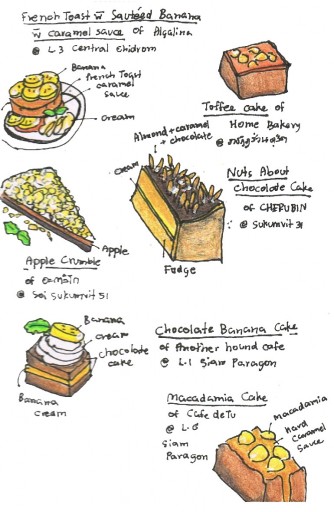 French Toast w̄ Sautéed Banana
w̄ caramel sauce of Algalina
@ L3 Central Chidlom
Banana
French Toast
caramel
sauce
cream
Toffee cake of
Home Bakery
@
Almond + caramel
+ chocolate
cream
Fudge
Nuts About
Chocolate Cake
of CHERUBIN
@ Sukumvit 31
Apple
Apple Crumble
of
@ Soi Sukumvit 51
Banana
cream
chocolate
cake
Banana
cream
Chocolate Banana Cake
of Another hound cafe
@ L.1 Siam Paragon
Macadamia Cake
of Cafe de Tu
@ L.G
Siam
Paragon
macadamia
hard
caramel
sauce